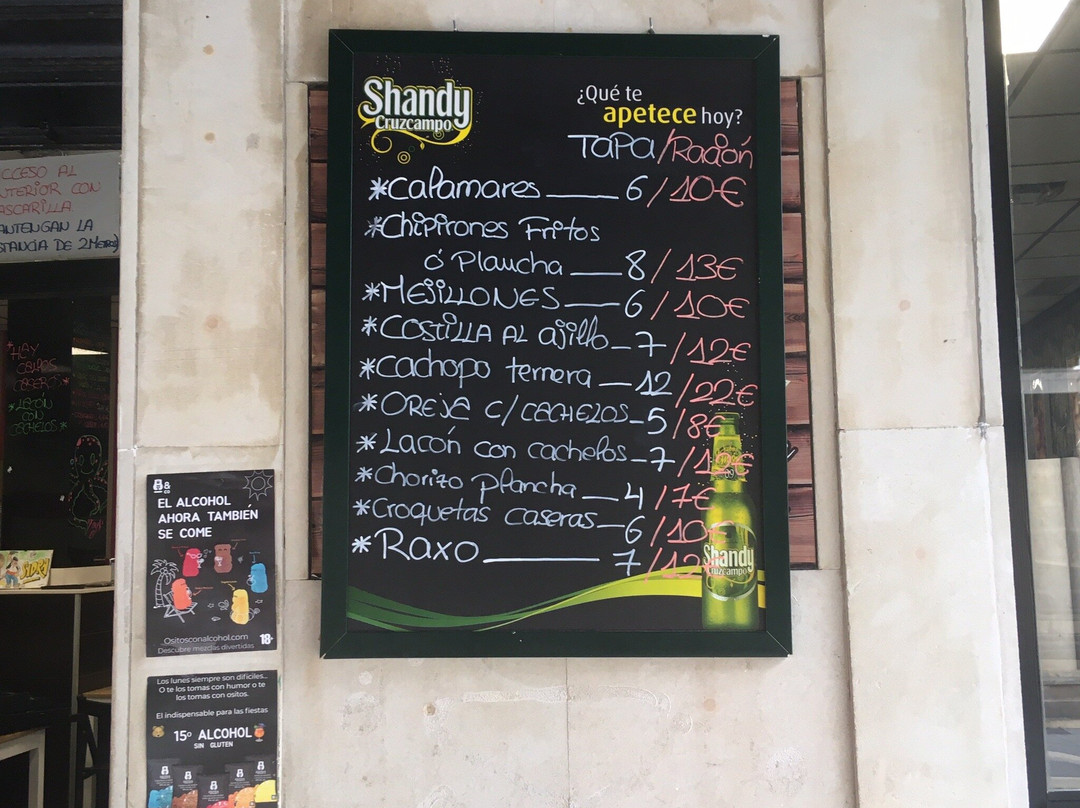 Shandy
Cruzcampo
¿Qué te
apetece hoy?
TAPA/Ración
*Calamares 6/10€
*Chipirones Fritos
ó Plancha 8/13€
*MEJILLONES 6/10€
*COSTILLA AL ajillo 7/12€
*Cachopo ternera 12/22€
*OREJA C/CACHELOS 5/8€
*Lacón con cachelos 7/12€
*Chorizo plancha 4/7€
*Croquetas caseras 6/10€
*Raxo 7/12
Shandy
Cruzcampo
CCESO AL
NTERIOR CON
ASCARILLA
ANTENGAN LA
STANCIA DE 2 Metros
HAY
CALLOS
CASEROS*
*LACÓN
CON
CACHELOS*
&
EL ALCOHOL
AHORA TAMBIÉN
SE COME
Ositosconalcohol.com
18+
Descubre mezclas divertidas
Los lunes siempre son difíciles...
O te los tomas con humor o te
los tomas con ositos.
El indispensable para las fiestas
15º ALCOHOL
SIN GLUTEN